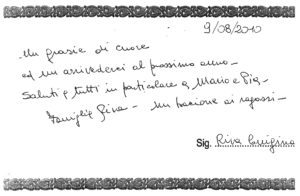 9/08/2010
Un grazie di cuore
ed un arrivederci al prossimo anno.
Saluti a tutti in particolare a Mario e Pia.
Famiglia Riva - Un bacione ai ragazzi -
Sig. Riva Luigina